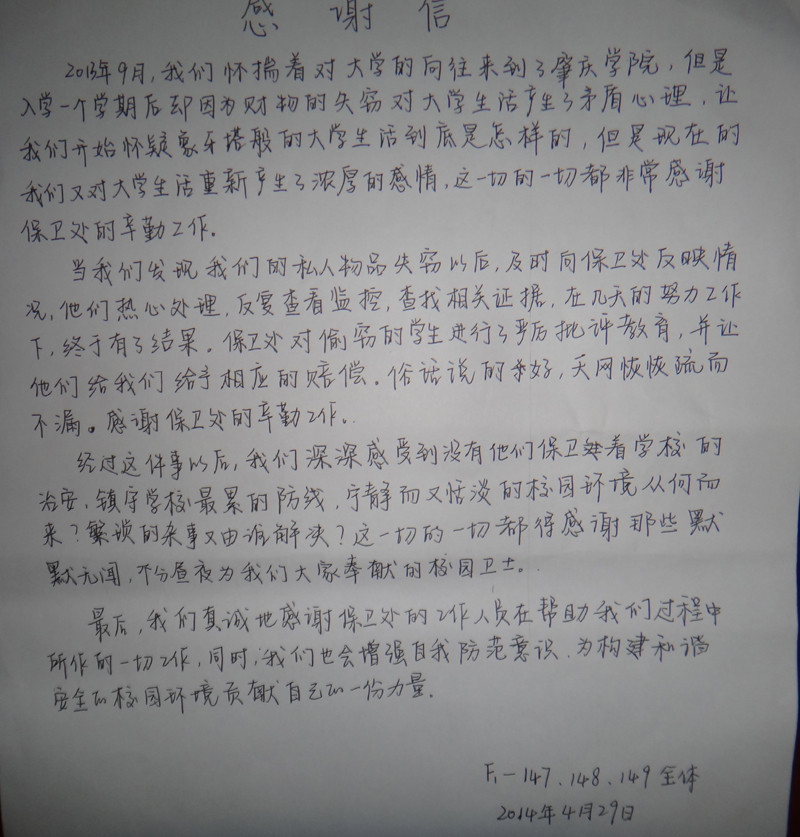 感谢信
2013年9月,我们怀揣着对大学的向往来到了肇庆学院,但是
入学一个学期后却因为财物的失窃对大学生活产生了矛盾心理,让
我们开始怀疑象牙塔般的大学生活到底是怎样的,但是现在的
我们又对大学生活重新产生了浓厚的感情,这一切的一切都非常感谢
保卫处的辛勤工作。
当我们发现我们的私人物品失窃以后,及时向保卫处反映情
况,他们热心处理,反复查看监控,查找相关证据,在几天的努力工作
下,终于有了结果。保卫处对偷窃的学生进行了严厉批评教育,并让
他们给我们给予相应的赔偿。俗话说的好,天网恢恢疏而
不漏。感谢保卫处的辛勤工作。
经过这件事以后,我们深深感受到没有他们保卫着学校的
治安,镇守学校最累的防线,宁静而又恬淡的校园环境从何而
来?繁琐的杂事又由谁解决?这一切的一切都得感谢那些默
默无闻,不分昼夜为我们大家奉献的校园卫士。
最后,我们真诚地感谢保卫处的工作人员在帮助我们过程中
所作的一切工作,同时,我们也会增强自我防范意识,为构建和谐
安全的校园环境贡献自己的一份力量.
F1-147、148、149全体
2014年4月29日